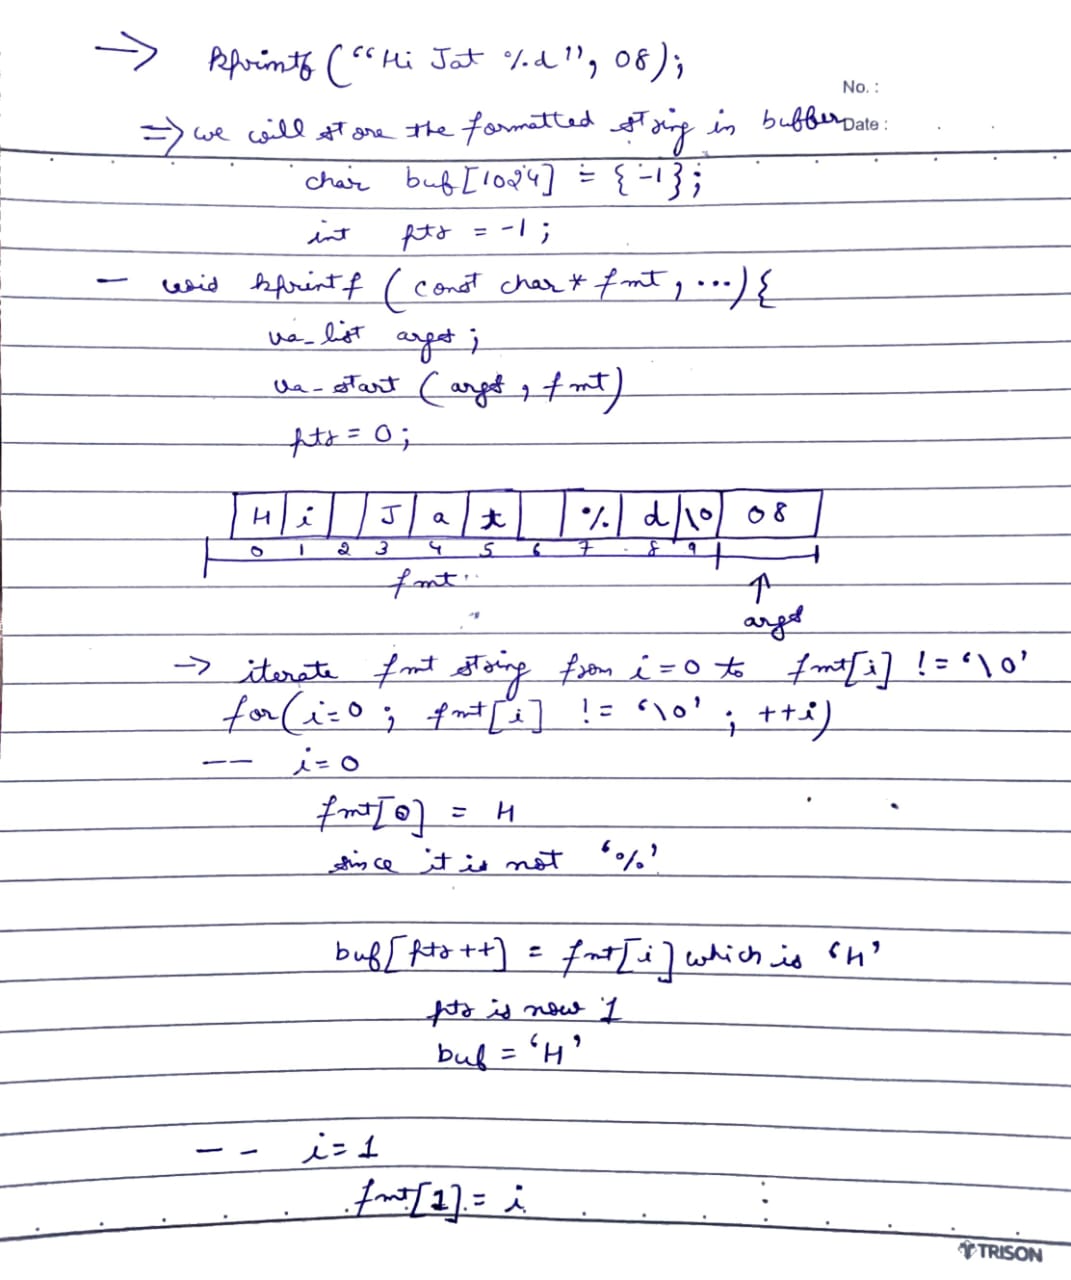 → kprintf (“Hi Jat %d”, 08);
No. :
⇒ we will store the formatted string in buffer
Date :
char buf[1024] = {-1};
int ptr = -1;
— void kprintf (const char* fmt, ...){
va_list args;
va_start (args, fmt)
ptr = 0;
H i J a t % d \0 08
0 1 2 3 4 5 6 7 8 9
fmt
args
→ iterate fmt string from i=0 to fmt[i] != '\0'
for(i=0; fmt[i] != '\0'; ++i)
-- i=0
fmt[0] = H
since it is not '%'
buf[ptr++] = fmt[i] which is 'H'
ptr is now 1
buf = 'H'
-- i=1
fmt[1] = i
TRISON